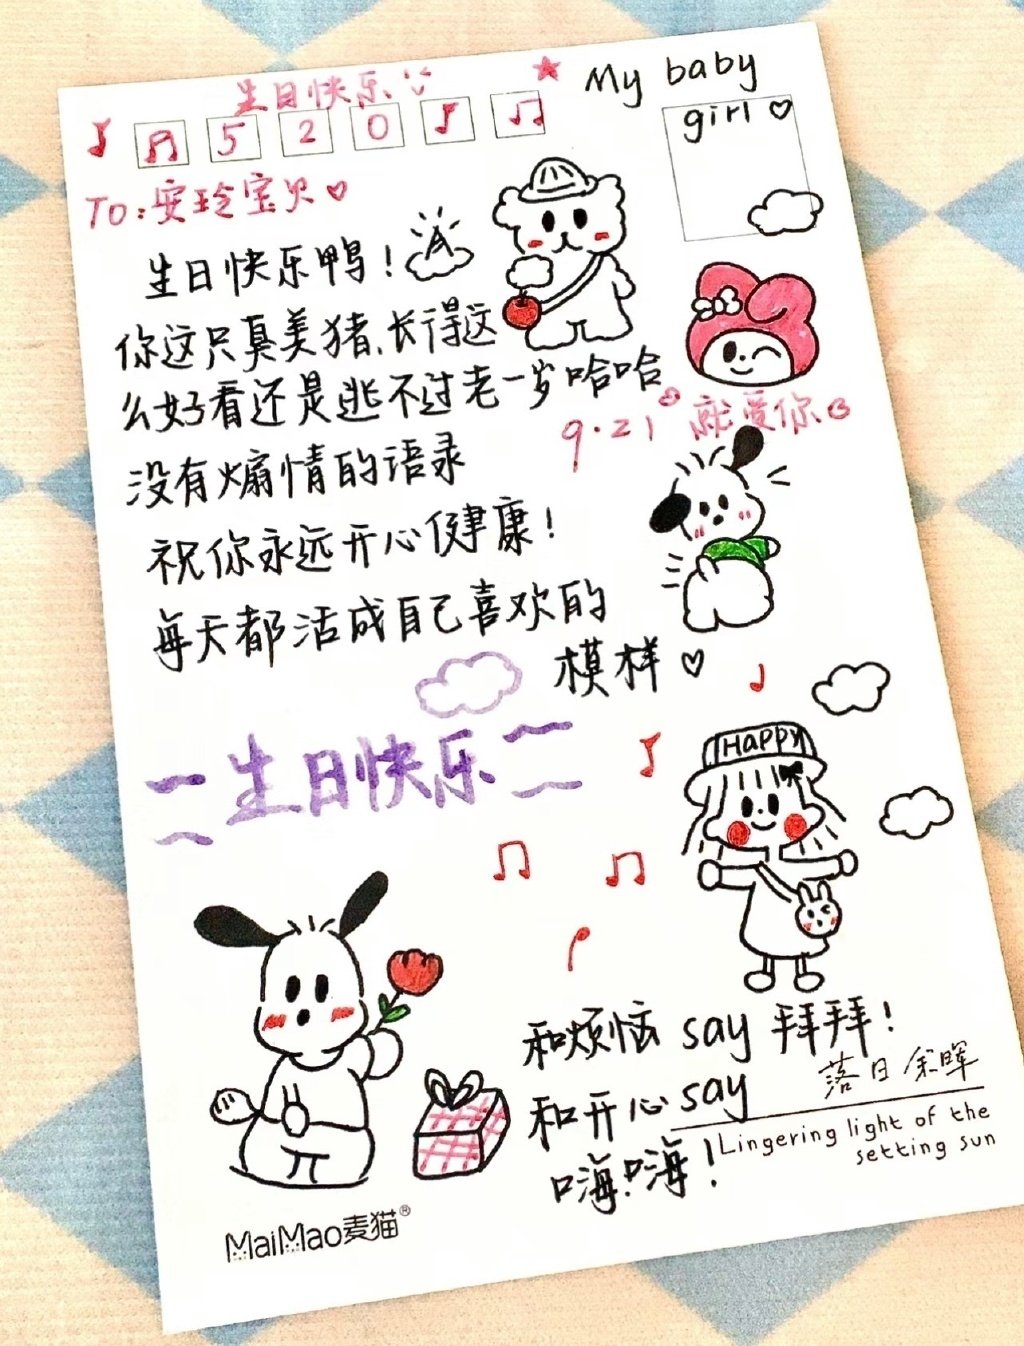 生日快乐
My baby
girl
5 2 0
To:安玲宝贝
生日快乐鸭!
你这只臭美猪、长得这
么好看还是逃不过老一岁哈哈
9.21 就爱你
没有煽情的语录
祝你永远开心健康!
每天都活成自己喜欢的
模样
生日快乐
HAPPY
和烦恼 say 拜拜!
落日余晖
和开心 say
Lingering light of the
setting sun
嗨!嗨!
MaiMao麦猫®